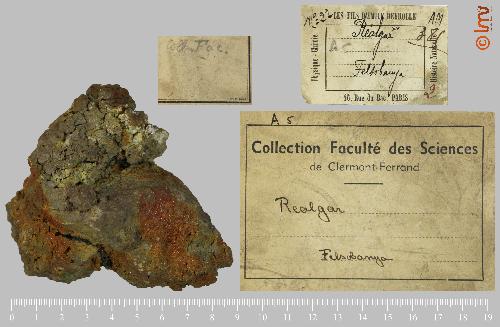 LES FILS D'EMILE DEYROLLE
Physique - Chimie
Histoire Naturelle
Realgar
Felsobanya
46, Rue du Bac, PARIS
A 5
Collection Faculté des Sciences
de Clermont-Ferrand
Realgar
Felsobanya
© lmv
0 1 2 3 4 5 6 7 8 9 10 11 12 13 14 15 16 17 18 19